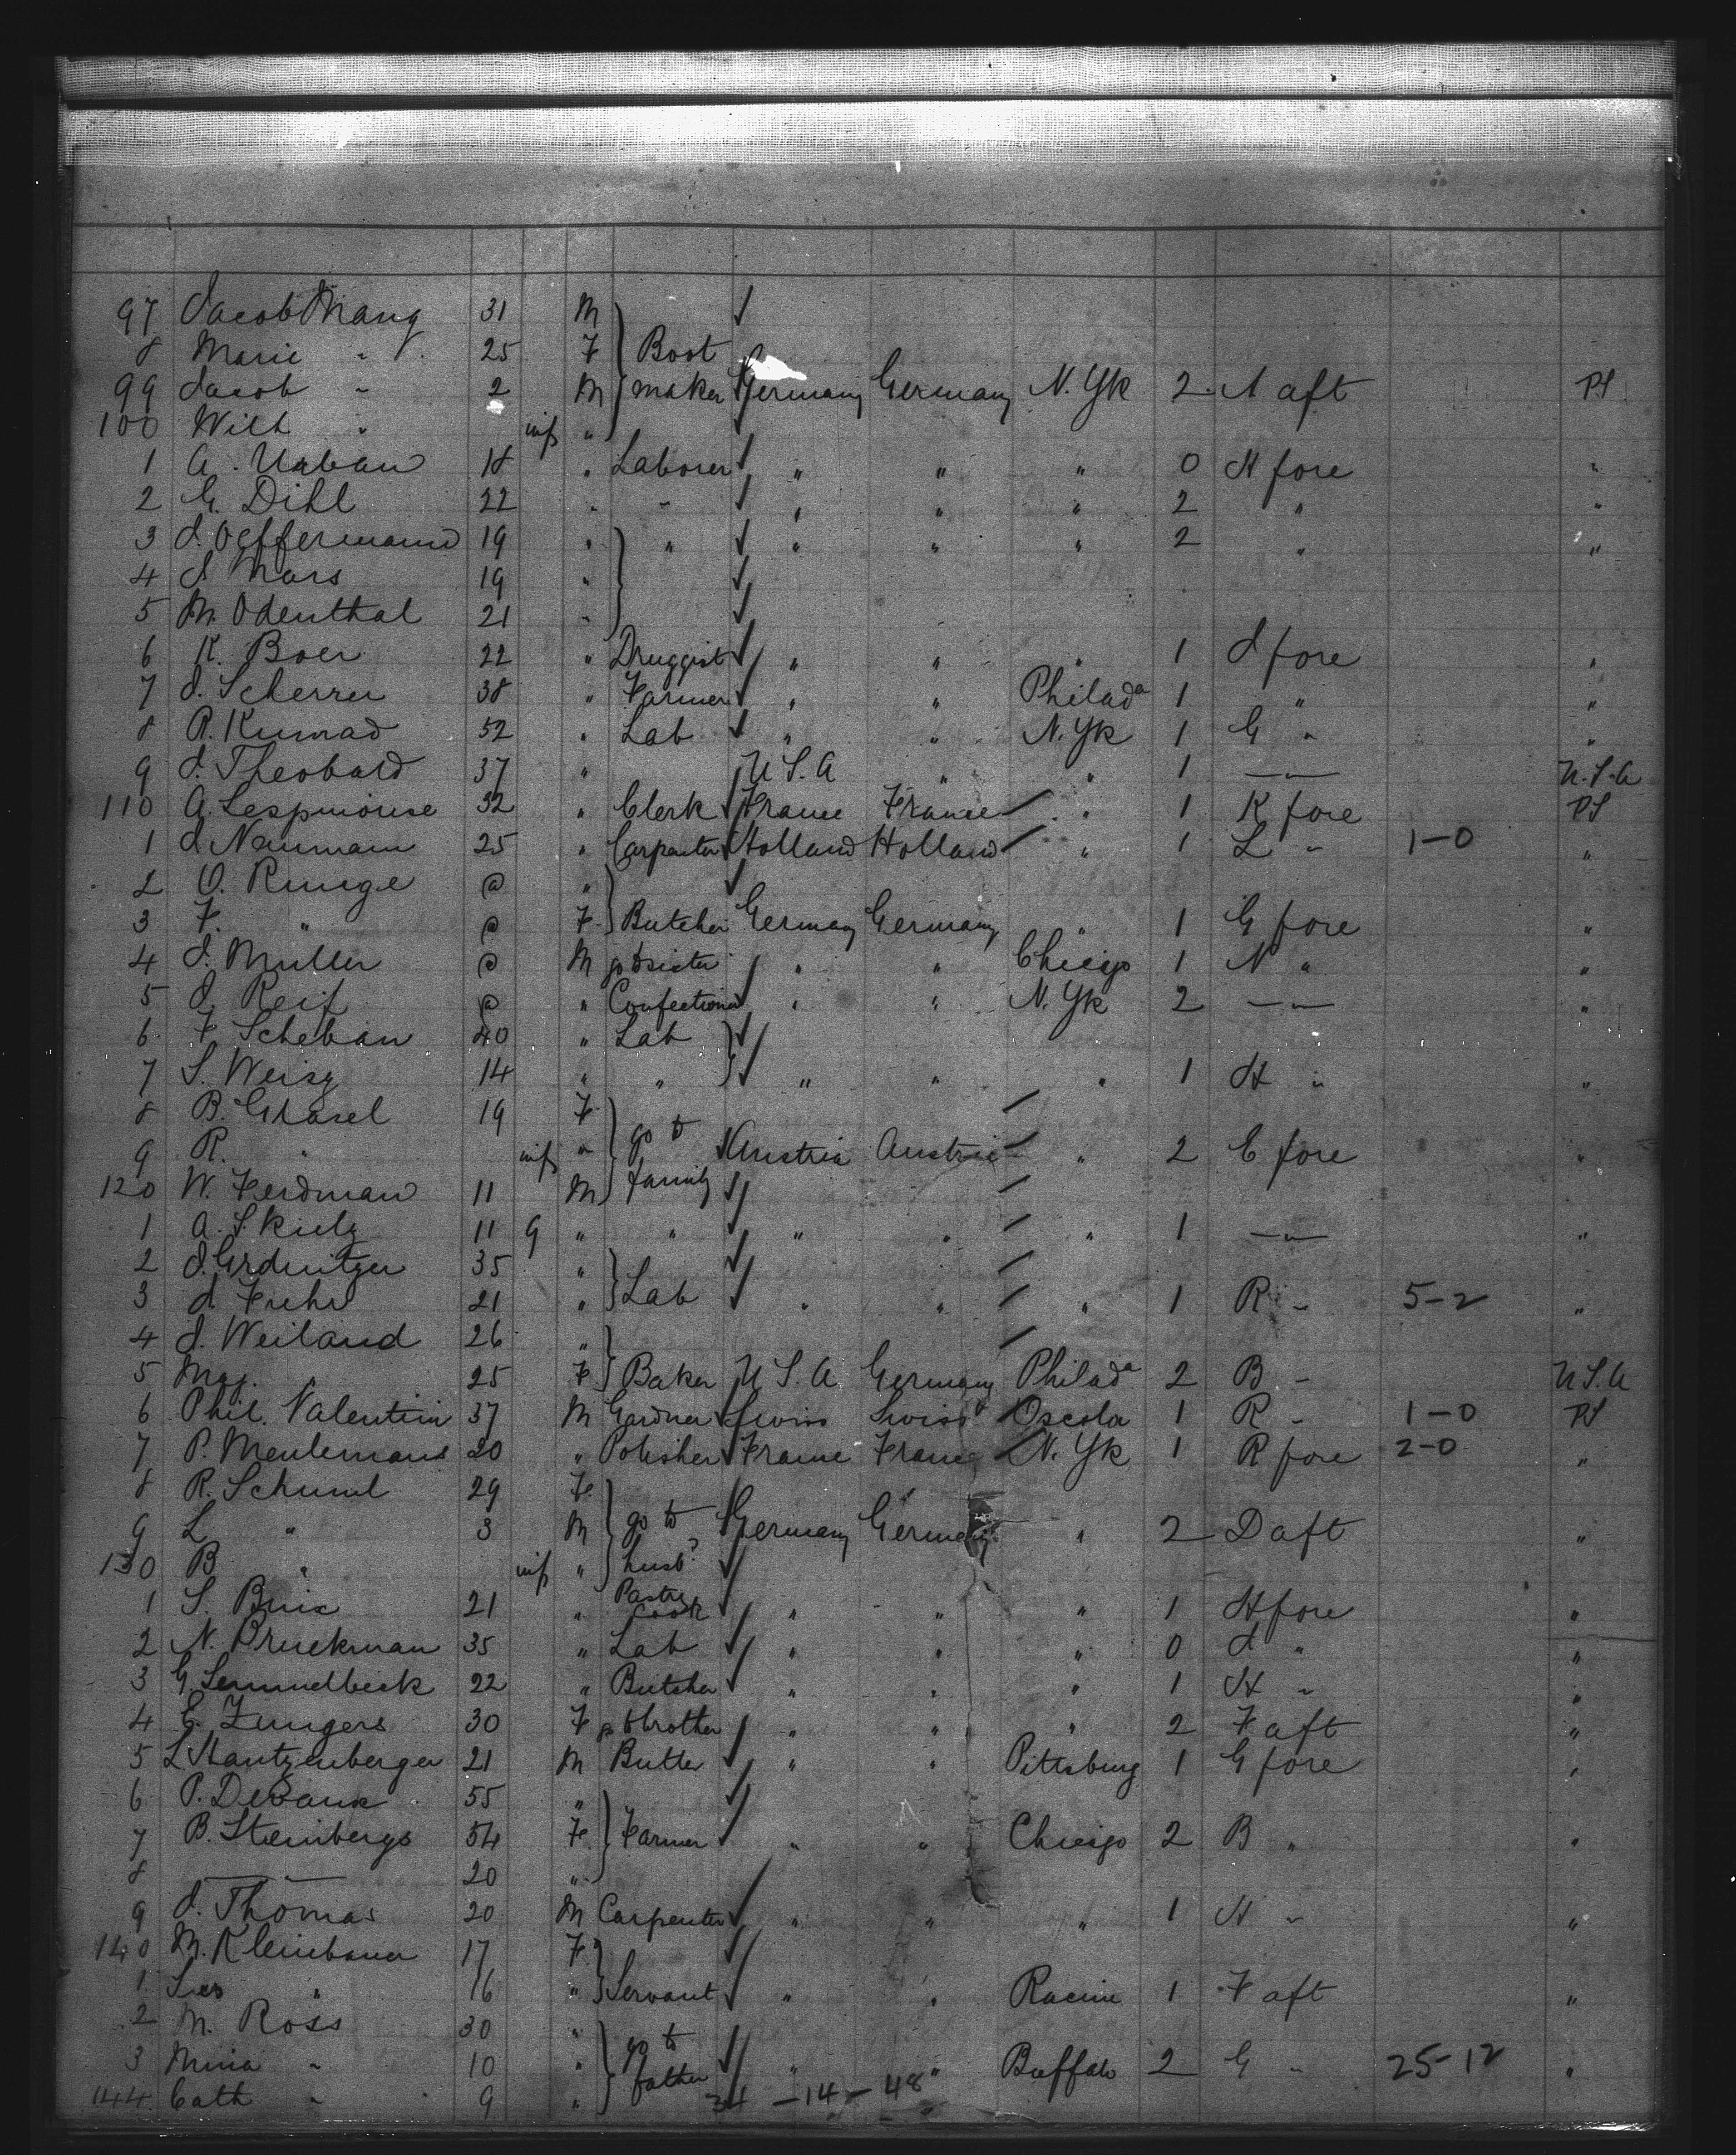 97 Jacob Mang 31 M
8 Marie " 25 F Boot
99 Jacob " 2 M maker Germany Germany N. Yk 2 A aft P.S
100 Wilh " inf "
1 A. Urban 18 " Laborer " " " 0 H fore "
2 G. Dihl 22 " " " " " 2 " "
3 J. Oeffermann 19 " " " " " 2 " "
4 J. Mors 19 "
5 M. Odenthal 21 "
6 K. Boer 22 " Druggist " " " 1 J fore "
7 J. Scherrer 38 " Farmer " " Philada 1 " "
8 R. Kumrad 52 " Lab " " N. Yk 1 G " "
9 J. Theobald 37 " U S. A " " 1 — " — U.S.A
110 A. 32 " Clerk France France " 1 K fore PS
1 J. Naumann 25 " Carpenter Holland Holland " 1 L " 1-0 "
2 O. Runge @ "
3 F. " @ F Butcher Germany Germany " 1 G fore "
4 J. Muller @ M go to sister " " Chicago 1 N " "
5 J. Reif @ " Confectioner " " N. Yk 2 — " — "
6 F Scheban 40 " Lab
7 S. Weisz 14 " " " " " 1 H " "
8 B. Grasel 19 F
9 R. " inf " go to Austria Austria " 2 C fore "
120 W. Ferdman 11 M family
1 A. Skulz 11 9 " " " " " 1 — " — "
2 J. 35 "
3 J. Fuhr 21 " Lab " " " 1 R " 5-2 "
4 J. Weiland 26 "
5 Mag. " 25 F Baker U S. A Germany Philada 2 B " U S. A
6 Phil. Valentin 37 M Gardner Swiss Swiss Osceola 1 R " 1-0 PS
7 P. Meulemans 20 " Polisher France France N. Yk 1 R fore 2-0 "
8 R. Schuml 29 F
9 L " 3 M go to Germany Germany " 2 D aft "
130 B " inf " husbd
1 S. 21 " Pastry Cook " " " 1 H fore "
2 N. Bruckman 35 " Lab " " " 0 J " "
3 G. 22 " Butcher " " " 1 H " "
4 E. Zungers 30 F go to brother " " " 2 F aft "
5 L. Hantzenberger 21 M Butler " " Pittsburg 1 G fore "
6 P. 55 "
7 B. Steinbergs 54 F Farmer " " Chicago 2 B " "
8 — " — 20 "
9 J. Thomas 20 M Carpenter " " " 1 N " "
140 M. Kleinbauer 17 F
1 " 16 " Servant " " Racine 1 F aft "
2 M. Ross 30 " go to
3 Mina " 10 " father " " Buffalo 2 G " 25-12 "
144 Cath " 9 " 34 - 14 - 48